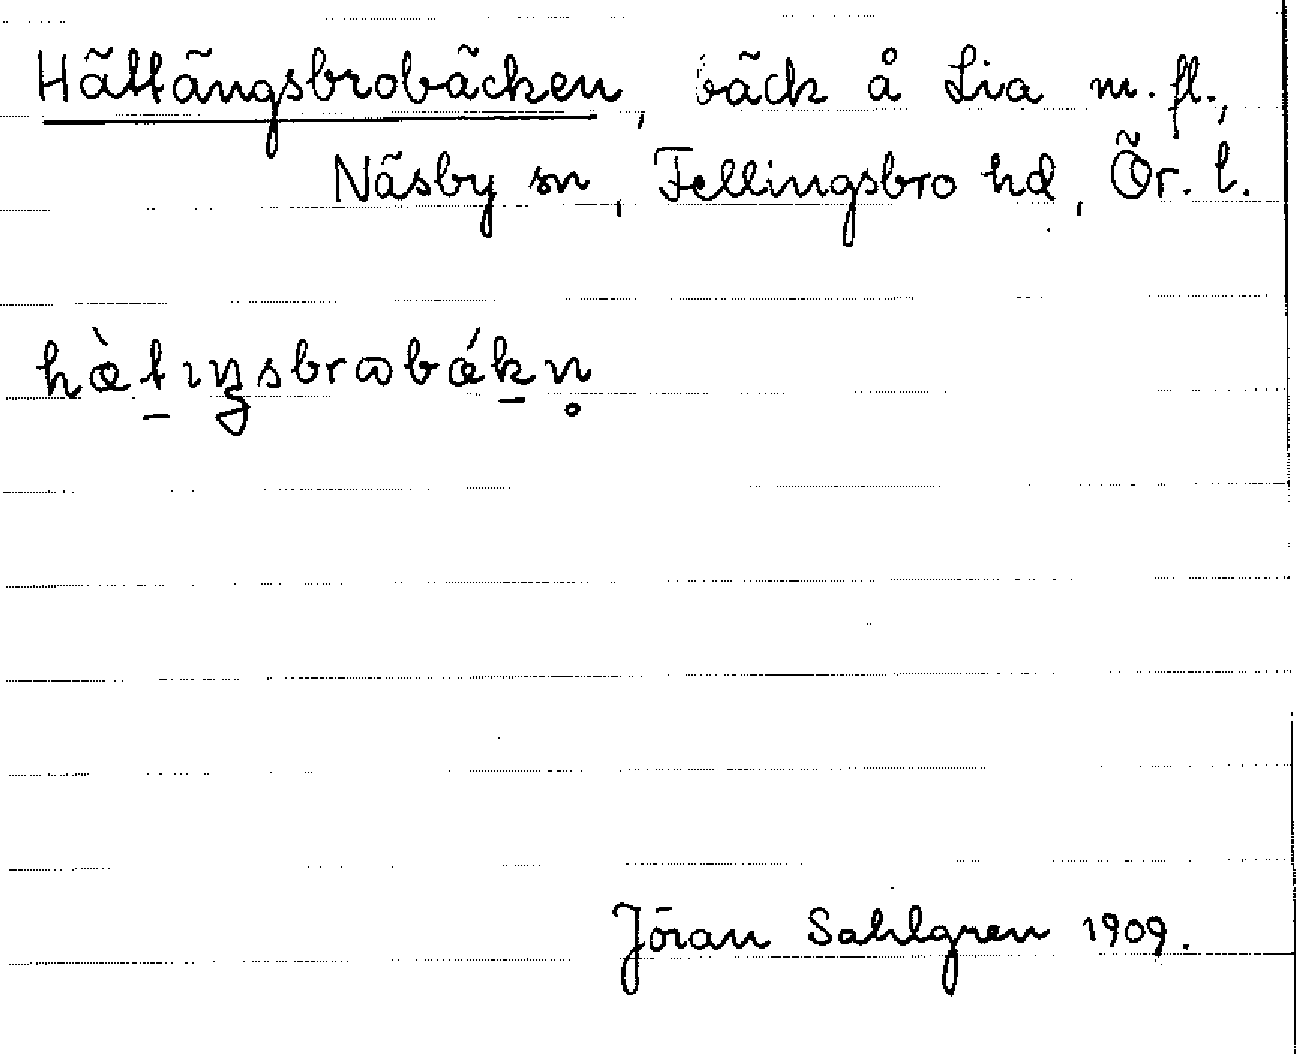 Hättängsbrobäcken, bäck å Lia m. fl.,
Näsby sn, Fellingsbro hd, Ör. l.
hæ̀t̠ıŋsbrɷbǽk̠n̥
Jöran Sahlgren 1909.